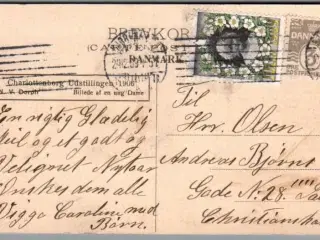 BREVKOR
(CARTE POSTA
DANMARK
Charlottenborg Udstillingen 1906
N. V. Dorph Billede af en ung Dame
En rigtig Glædelig
Jul og et godt og
Velsignet Nytaar
Ønskes dem alle
Viggo Caroline med
Børn.
Til
Hrr. Olsen
Andreas Bjørns
Gade Nr. 28
Christiansha
DANM